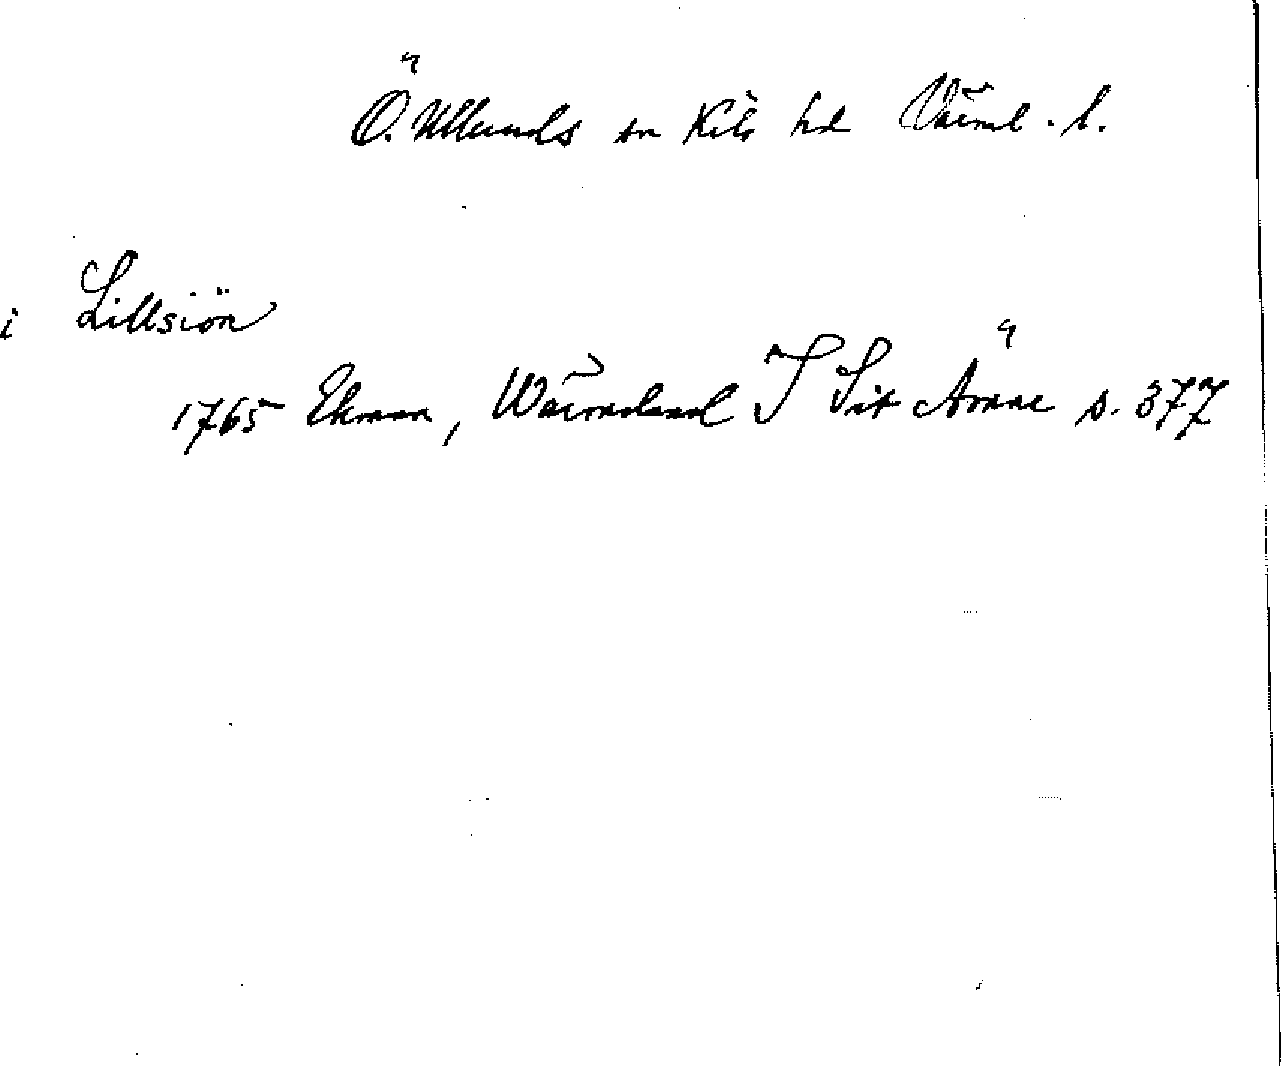 Ö. Ulleruds sn Kils hd Värml. l.
i Lillsiön
1765 Ekman, Wärmeland I Sit Ämne s. 377